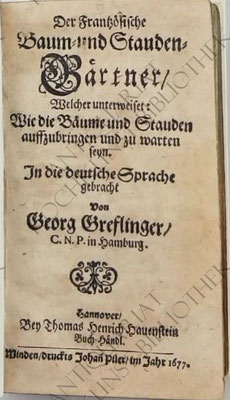 Der Frantzösische
Baum-und Stauden-
Gärtner/
Welcher unterweiset:
Wie die Bäume und Stauden
auffzubringen und zu warten
seyn.
In die deutsche Sprache
gebracht
Von
Georg Greflinger/
C. N. P. in Hamburg.
Hannover/
Bey Thomas Henrich Hauenstein
Buch-Händl.
Minden/druckts Johañ Piler/im Jahr 1677.